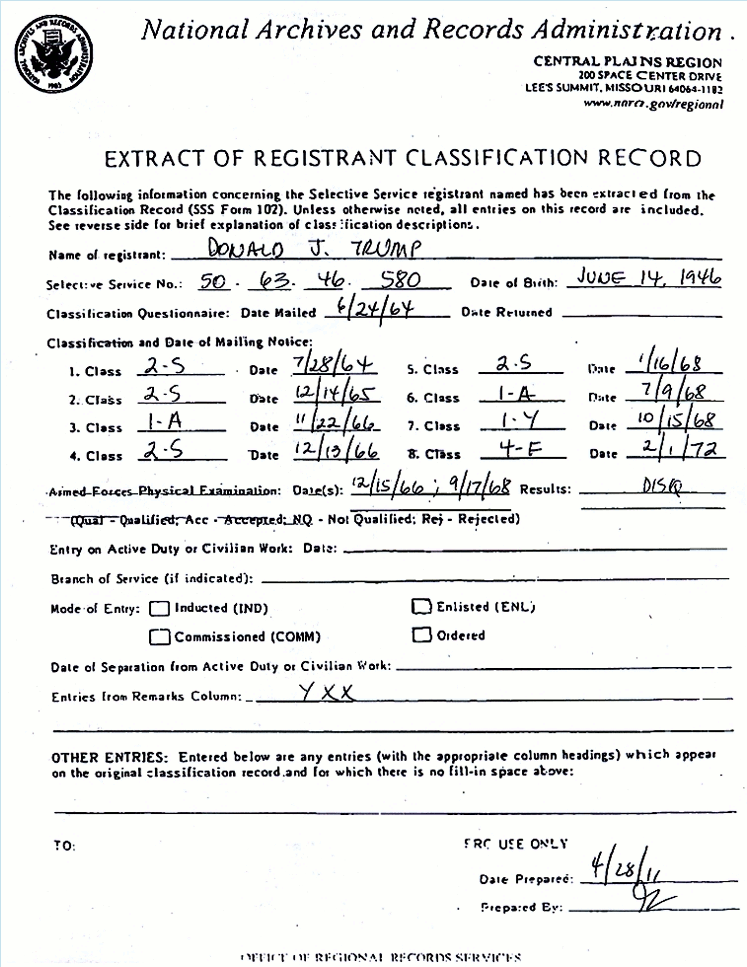 National Archives and Records Administration
CENTRAL PLAINS REGION
200 SPACE CENTER DRIVE
LEE'S SUMMIT, MISSOURI 64064-1182
www.nara.gov/regional
EXTRACT OF REGISTRANT CLASSIFICATION RECORD
The following information concerning the Selective Service registrant named has been extracted from the
Classification Record (SSS Form 102). Unless otherwise noted, all entries on this record are included.
See reverse side for brief explanation of classification descriptions.
Name of registrant: DONALD J. TRUMP
Selective Service No.: 50 . 63. 46. 580 Date of Birth: JUNE 14, 1946
Classification Questionnaire: Date Mailed 6/24/64 Date Returned
Classification and Date of Mailing Notice:
1. Class 2-S Date 7/28/64 5. Class 2-S Date 1/16/68
2. Class 2-S Date 12/14/65 6. Class 1-A Date 7/9/68
3. Class 1-A Date 11/22/66 7. Class 1-Y Date 10/15/68
4. Class 2-S Date 12/13/66 8. Class 4-F Date 2/1/72
Armed Forces Physical Examination: Date(s): 12/15/66 ; 9/17/68 Results: DISQ
(Qual - Qualified; Acc - Accepted; NQ - Not Qualified; Rej - Rejected)
Entry on Active Duty or Civilian Work: Date:
Branch of Service (if indicated):
Mode of Entry: Inducted (IND) Enlisted (ENL)
Commissioned (COMM) Ordered
Date of Separation from Active Duty or Civilian Work:
Entries from Remarks Column: YXX
OTHER ENTRIES: Entered below are any entries (with the appropriate column headings) which appear
on the original classification record and for which there is no fill-in space above:
TO: FRC USE ONLY
Date Prepared: 4/28/11
Prepared By:
OFFICE OF REGIONAL RECORDS SERVICES